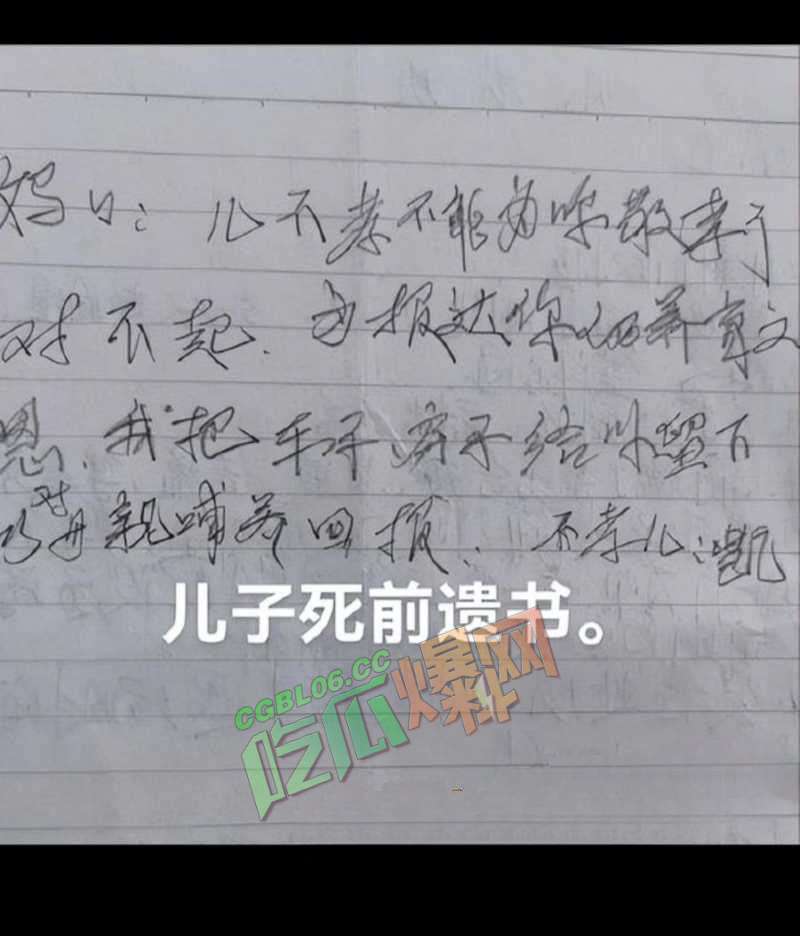 妈口：儿不孝不能为你敬孝了
对不起．为报达你的养育之
恩．我把车子房子给你留下
对母亲哺养回报．不孝儿：凯
儿子死前遗书。
CGBL06.CC
吃瓜爆网